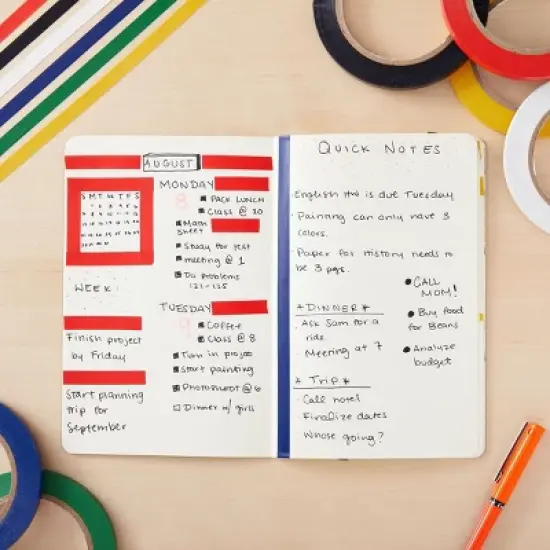 AUGUST
S M T W T F S
WEEK:
Finish project
by Friday
Start planning
trip for
September
MONDAY
8
PACK LUNCH
Class @ 10
Math
Sheet
Study for test
meeting @ 1
Do problems
121-125
TUESDAY
9
Coffee
Class @ 8
Turn in project
Start painting
PHOTOSHOOT @ 6
Dinner w/ girls
QUICK NOTES
English HW is due Tuesday
Painting can only have 3
colors.
Paper for History needs to
be 3 pgs.
CALL
MOM!
Buy food
for Beans
Analyze
budget
*DINNER*
Ask Sam for a
ride
Meeting at 7
* Trip *
Call hotel
Finalize dates
Whose going?